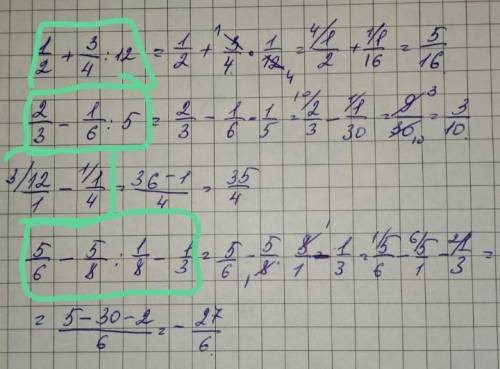 1/2 + 3/4 : 12 = 1/2 + ¹3/4 · 1/12 ₄ = ⁴/1/2 + ¹/1/16 = 5/16
2/3 - 1/6 : 5 = 2/3 - 1/6 · 1/5 = ¹⁰/2/3 - ¹/1/30 = 9 ³/30 ₁₀ = 3/10.
³/12/1 - ¹/1/4 = 36-1/4 = 35/4
5/6 - 5/8 : 1/8 - 1/3 = 5/6 - 5/8 ₁ · 8 ¹/1 - 1/3 = ¹/5/6 - ⁶/5/1 - ²/1/3 =
= 5-30-2/6 = - 27/6.